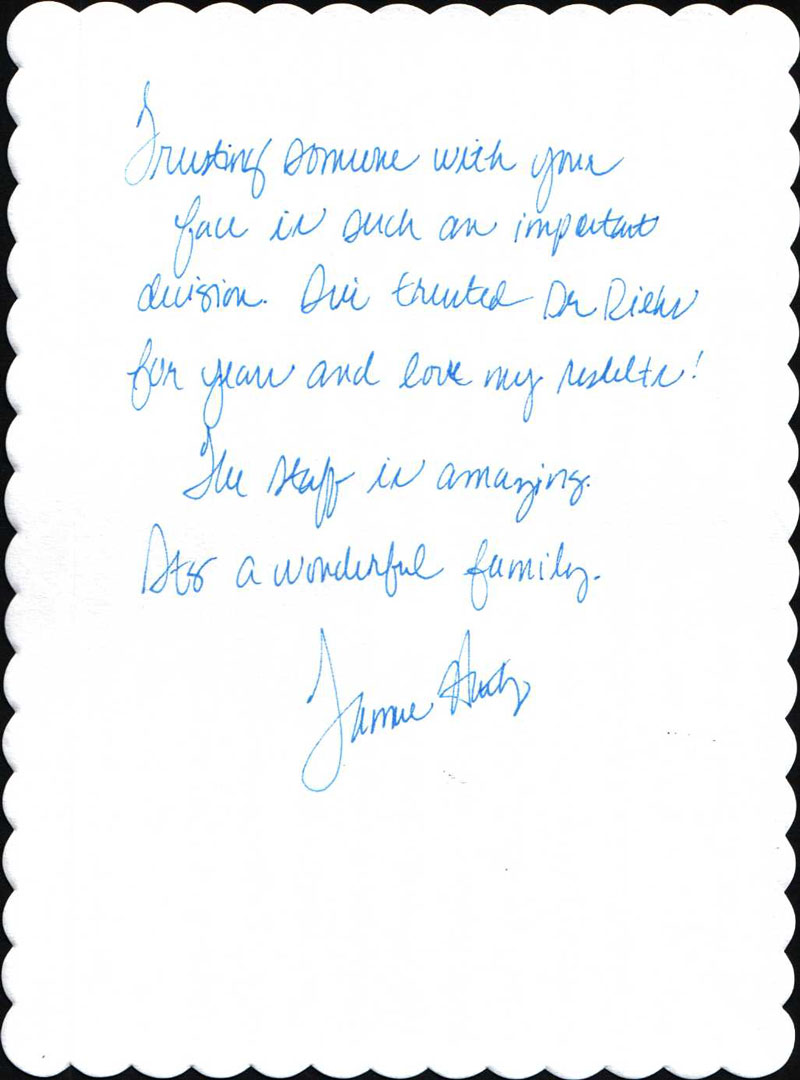 Trusting someone with your
face is such an important
decision. I've trusted Dr Diehr
for years and love my results!
The staff is amazing.
Its a wonderful family.